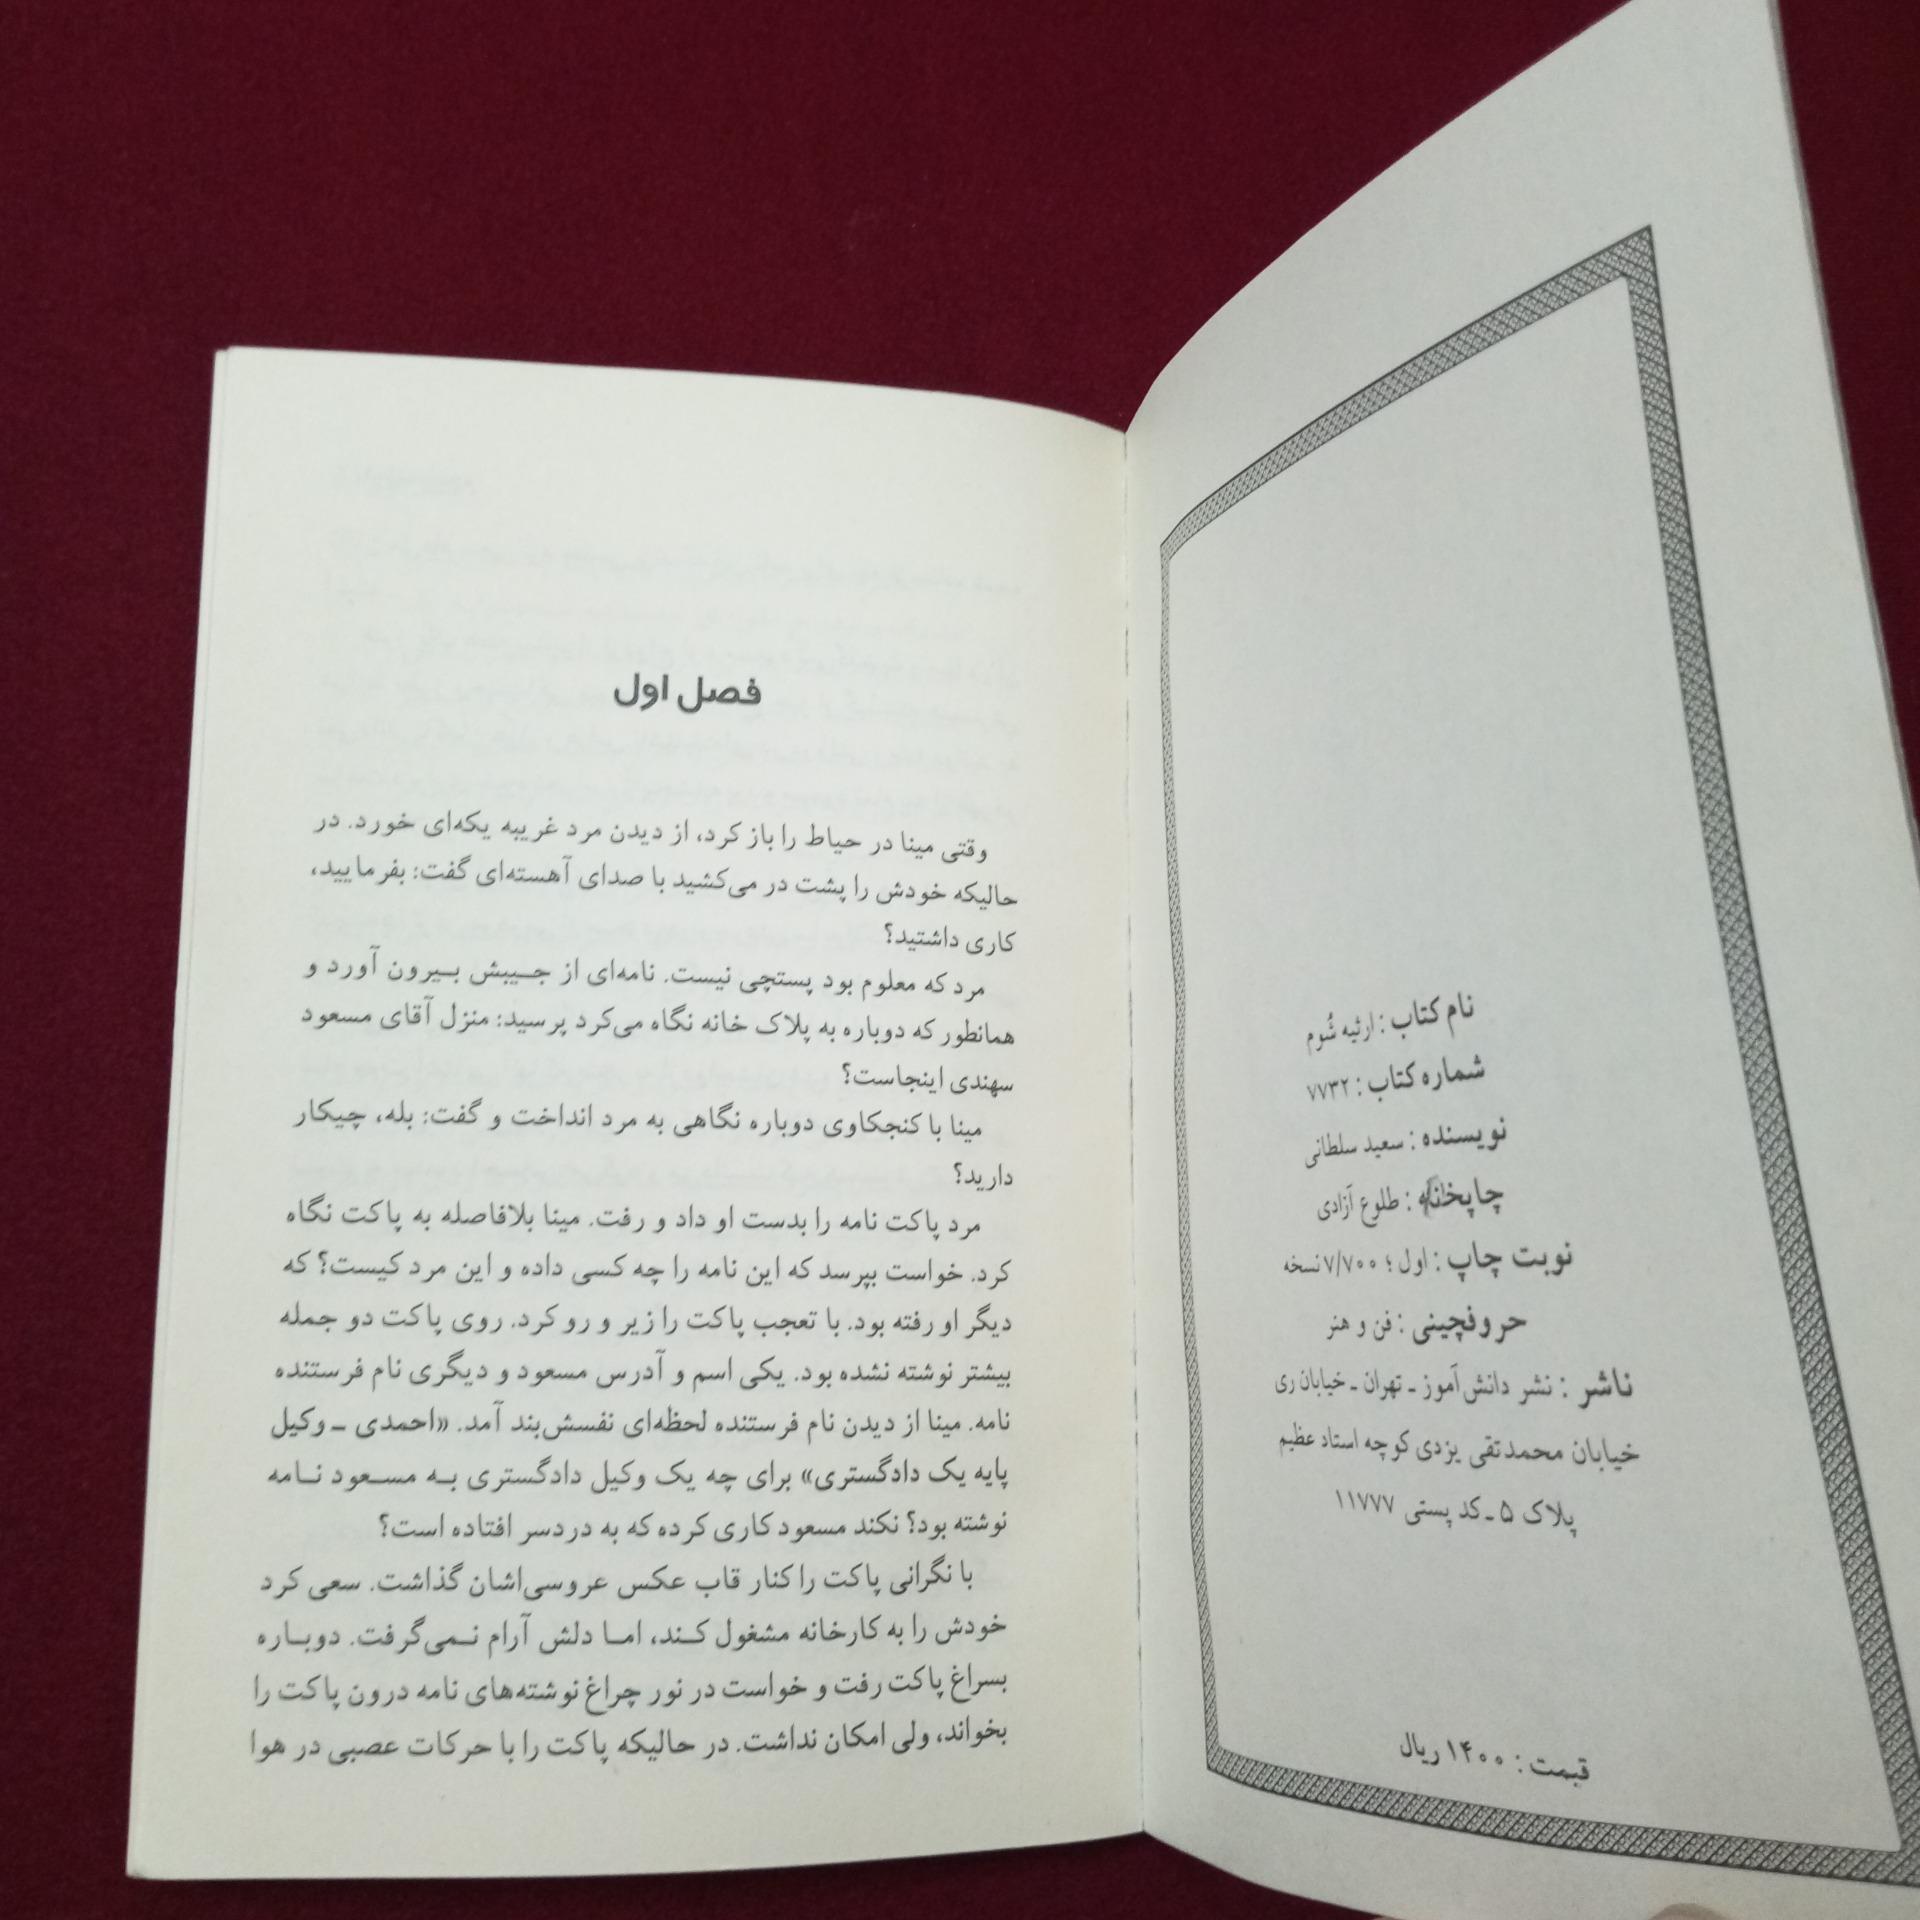 نام کتاب : ارثیه شُوم
شماره کتاب : ۷۷۳۲
نویسنده : سعید سلطانی
چاپخانه : طلوع آزادی
نوبت چاپ : اول ؛ ۷/۷۰۰ نسخه
حروفچینی : فن و هنر
ناشر : نشر دانش‌آموز ـ تهران ـ خیابان ری
خیابان محمدتقی یزدی کوچه استاد عظیم
پلاک ۵ ـ کد پستی ۱۱۷۷۷
قیمت : ۱۴۰۰ ریال
فصل اول
وقتی مینا در حیاط را باز کرد، از دیدن مرد غریبه یکه‌ای خورد. در
حالیکه خودش را پشت در می‌کشید با صدای آهسته‌ای گفت: بفرمایید،
کاری داشتید؟
مرد که معلوم بود پستچی نیست. نامه‌ای از جیبش بیرون آورد و
همانطور که دوباره به پلاک خانه نگاه می‌کرد پرسید: منزل آقای مسعود
سهندی اینجاست؟
مینا با کنجکاوی دوباره نگاهی به مرد انداخت و گفت: بله، چیکار
دارید؟
مرد پاکت نامه را بدست او داد و رفت. مینا بلافاصله به پاکت نگاه
کرد. خواست بپرسد که این نامه را چه کسی داده و این مرد کیست؟ که
دیگر او رفته بود. با تعجب پاکت را زیر و رو کرد. روی پاکت دو جمله
بیشتر نوشته نشده بود. یکی اسم و آدرس مسعود و دیگری نام فرستنده
نامه. مینا از دیدن نام فرستنده لحظه‌ای نفسش‌بند آمد. «احمدی ـ وکیل
پایه یک دادگستری» برای چه یک وکیل دادگستری به مسعود نامه
نوشته بود؟ نکند مسعود کاری کرده که به دردسر افتاده است؟
با نگرانی پاکت را کنار قاب عکس عروسی‌اشان گذاشت. سعی کرد
خودش را به کارخانه مشغول کند، اما دلش آرام نمی‌گرفت. دوباره
بسراغ پاکت رفت و خواست در نور چراغ نوشته‌های نامه درون پاکت را
بخواند، ولی امکان نداشت. در حالیکه پاکت را با حرکات عصبی در هوا